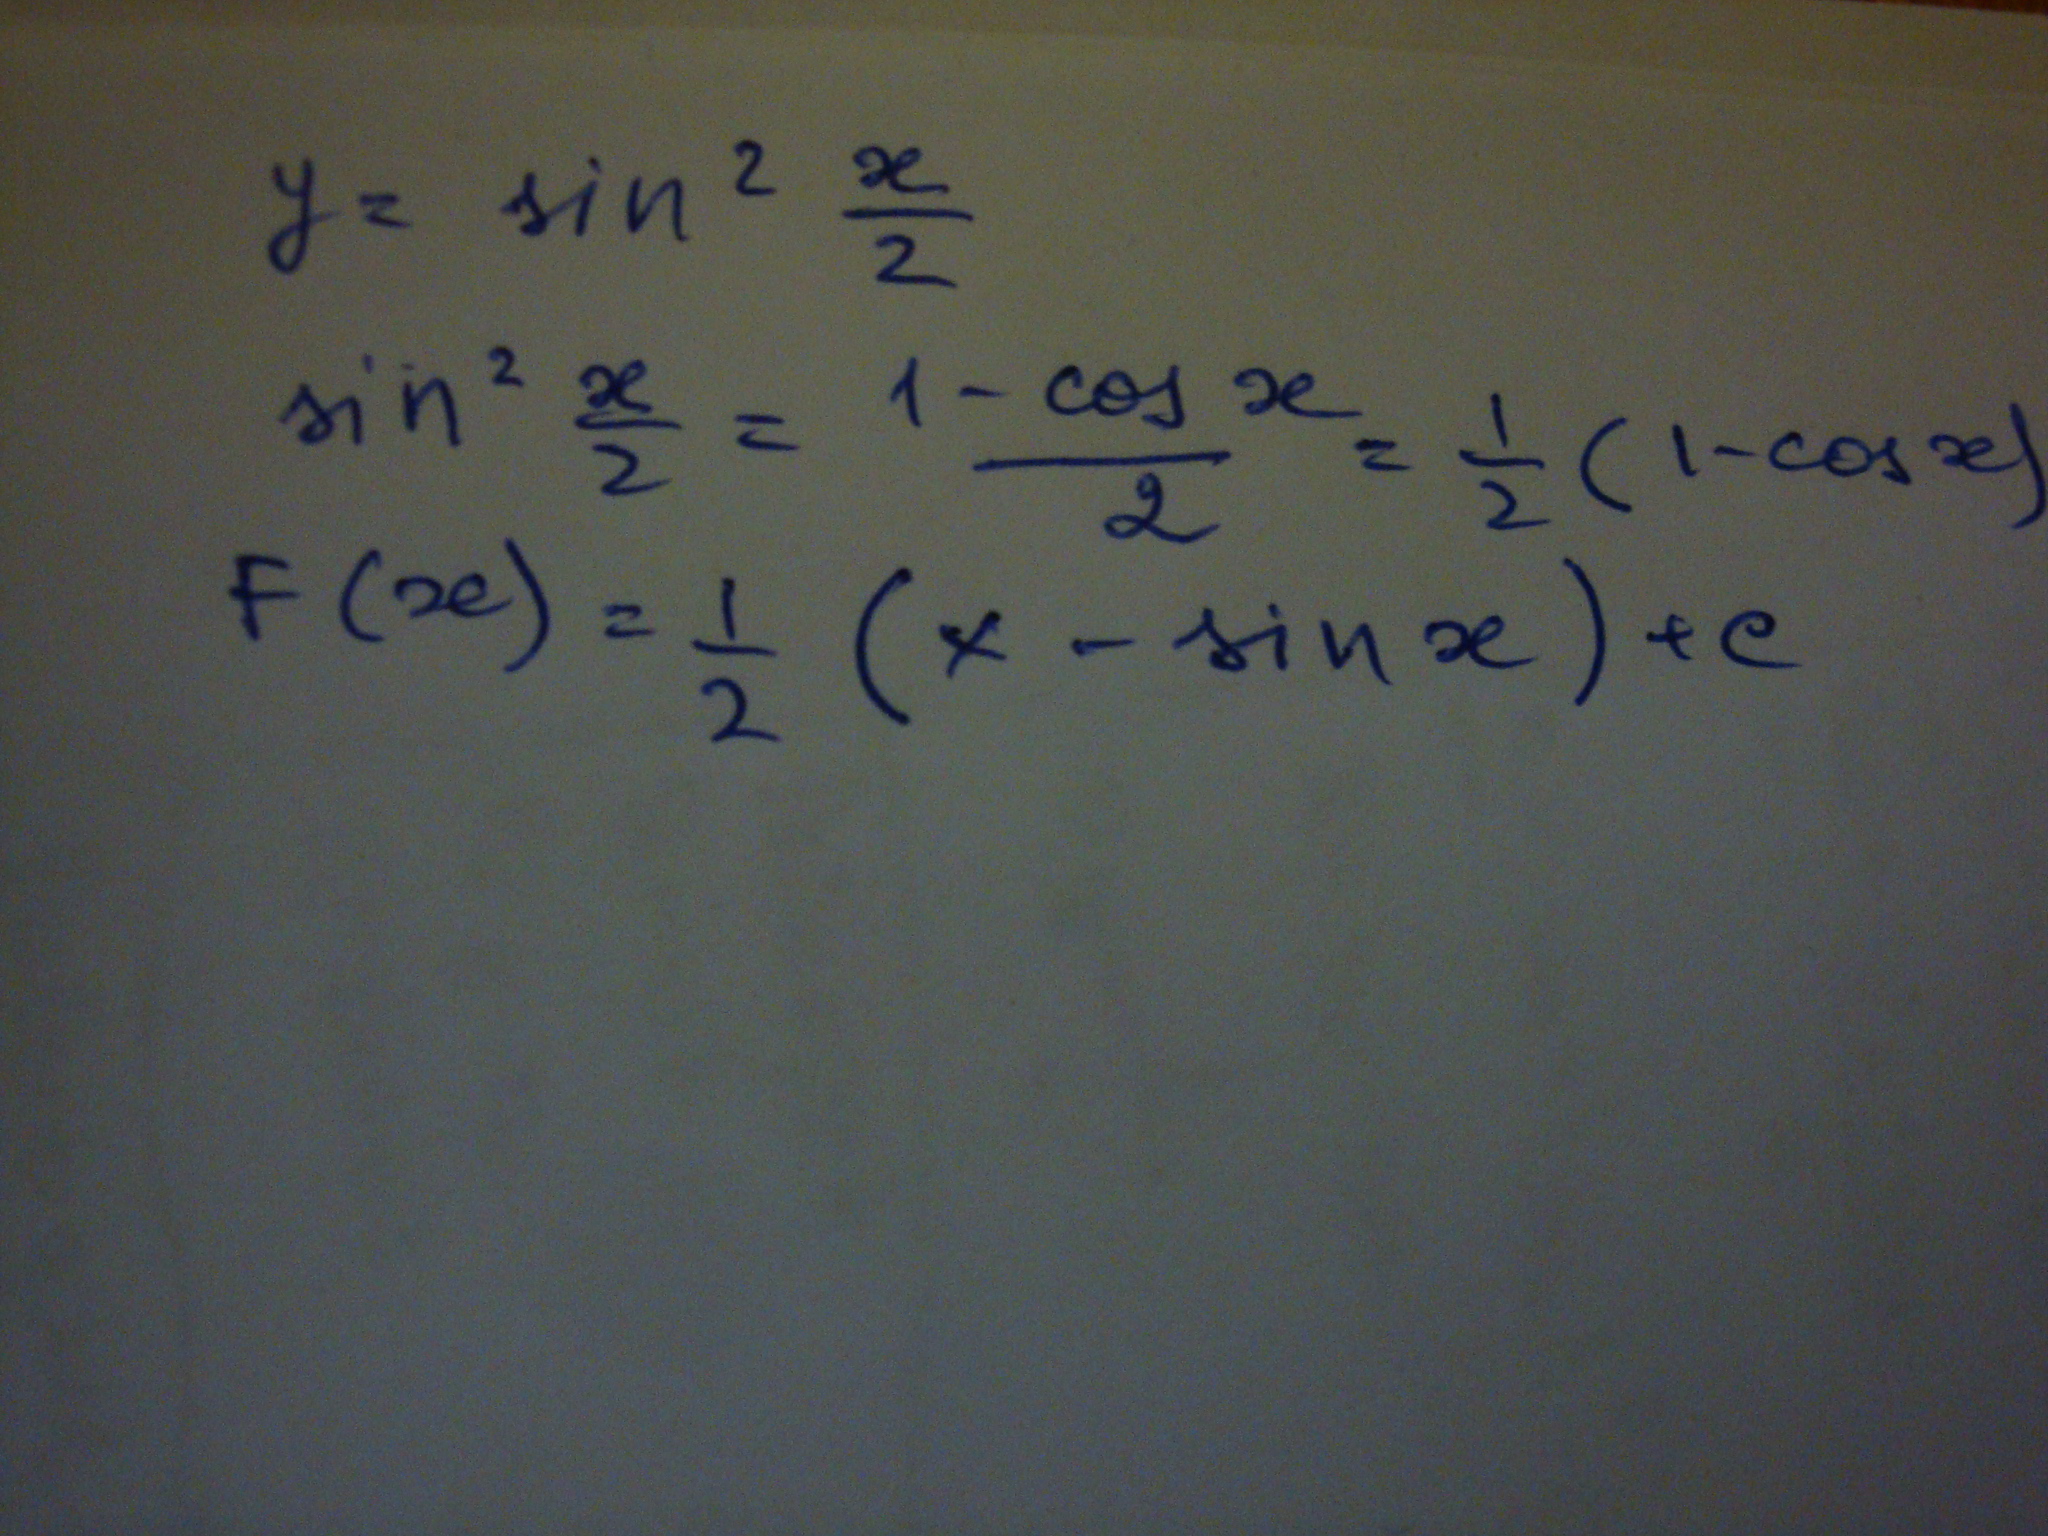 y = sin² x/2
sin² x/2 = (1 - cos x)/2 = 1/2 (1 - cos x)
F(x) = 1/2 (x - sin x) + c